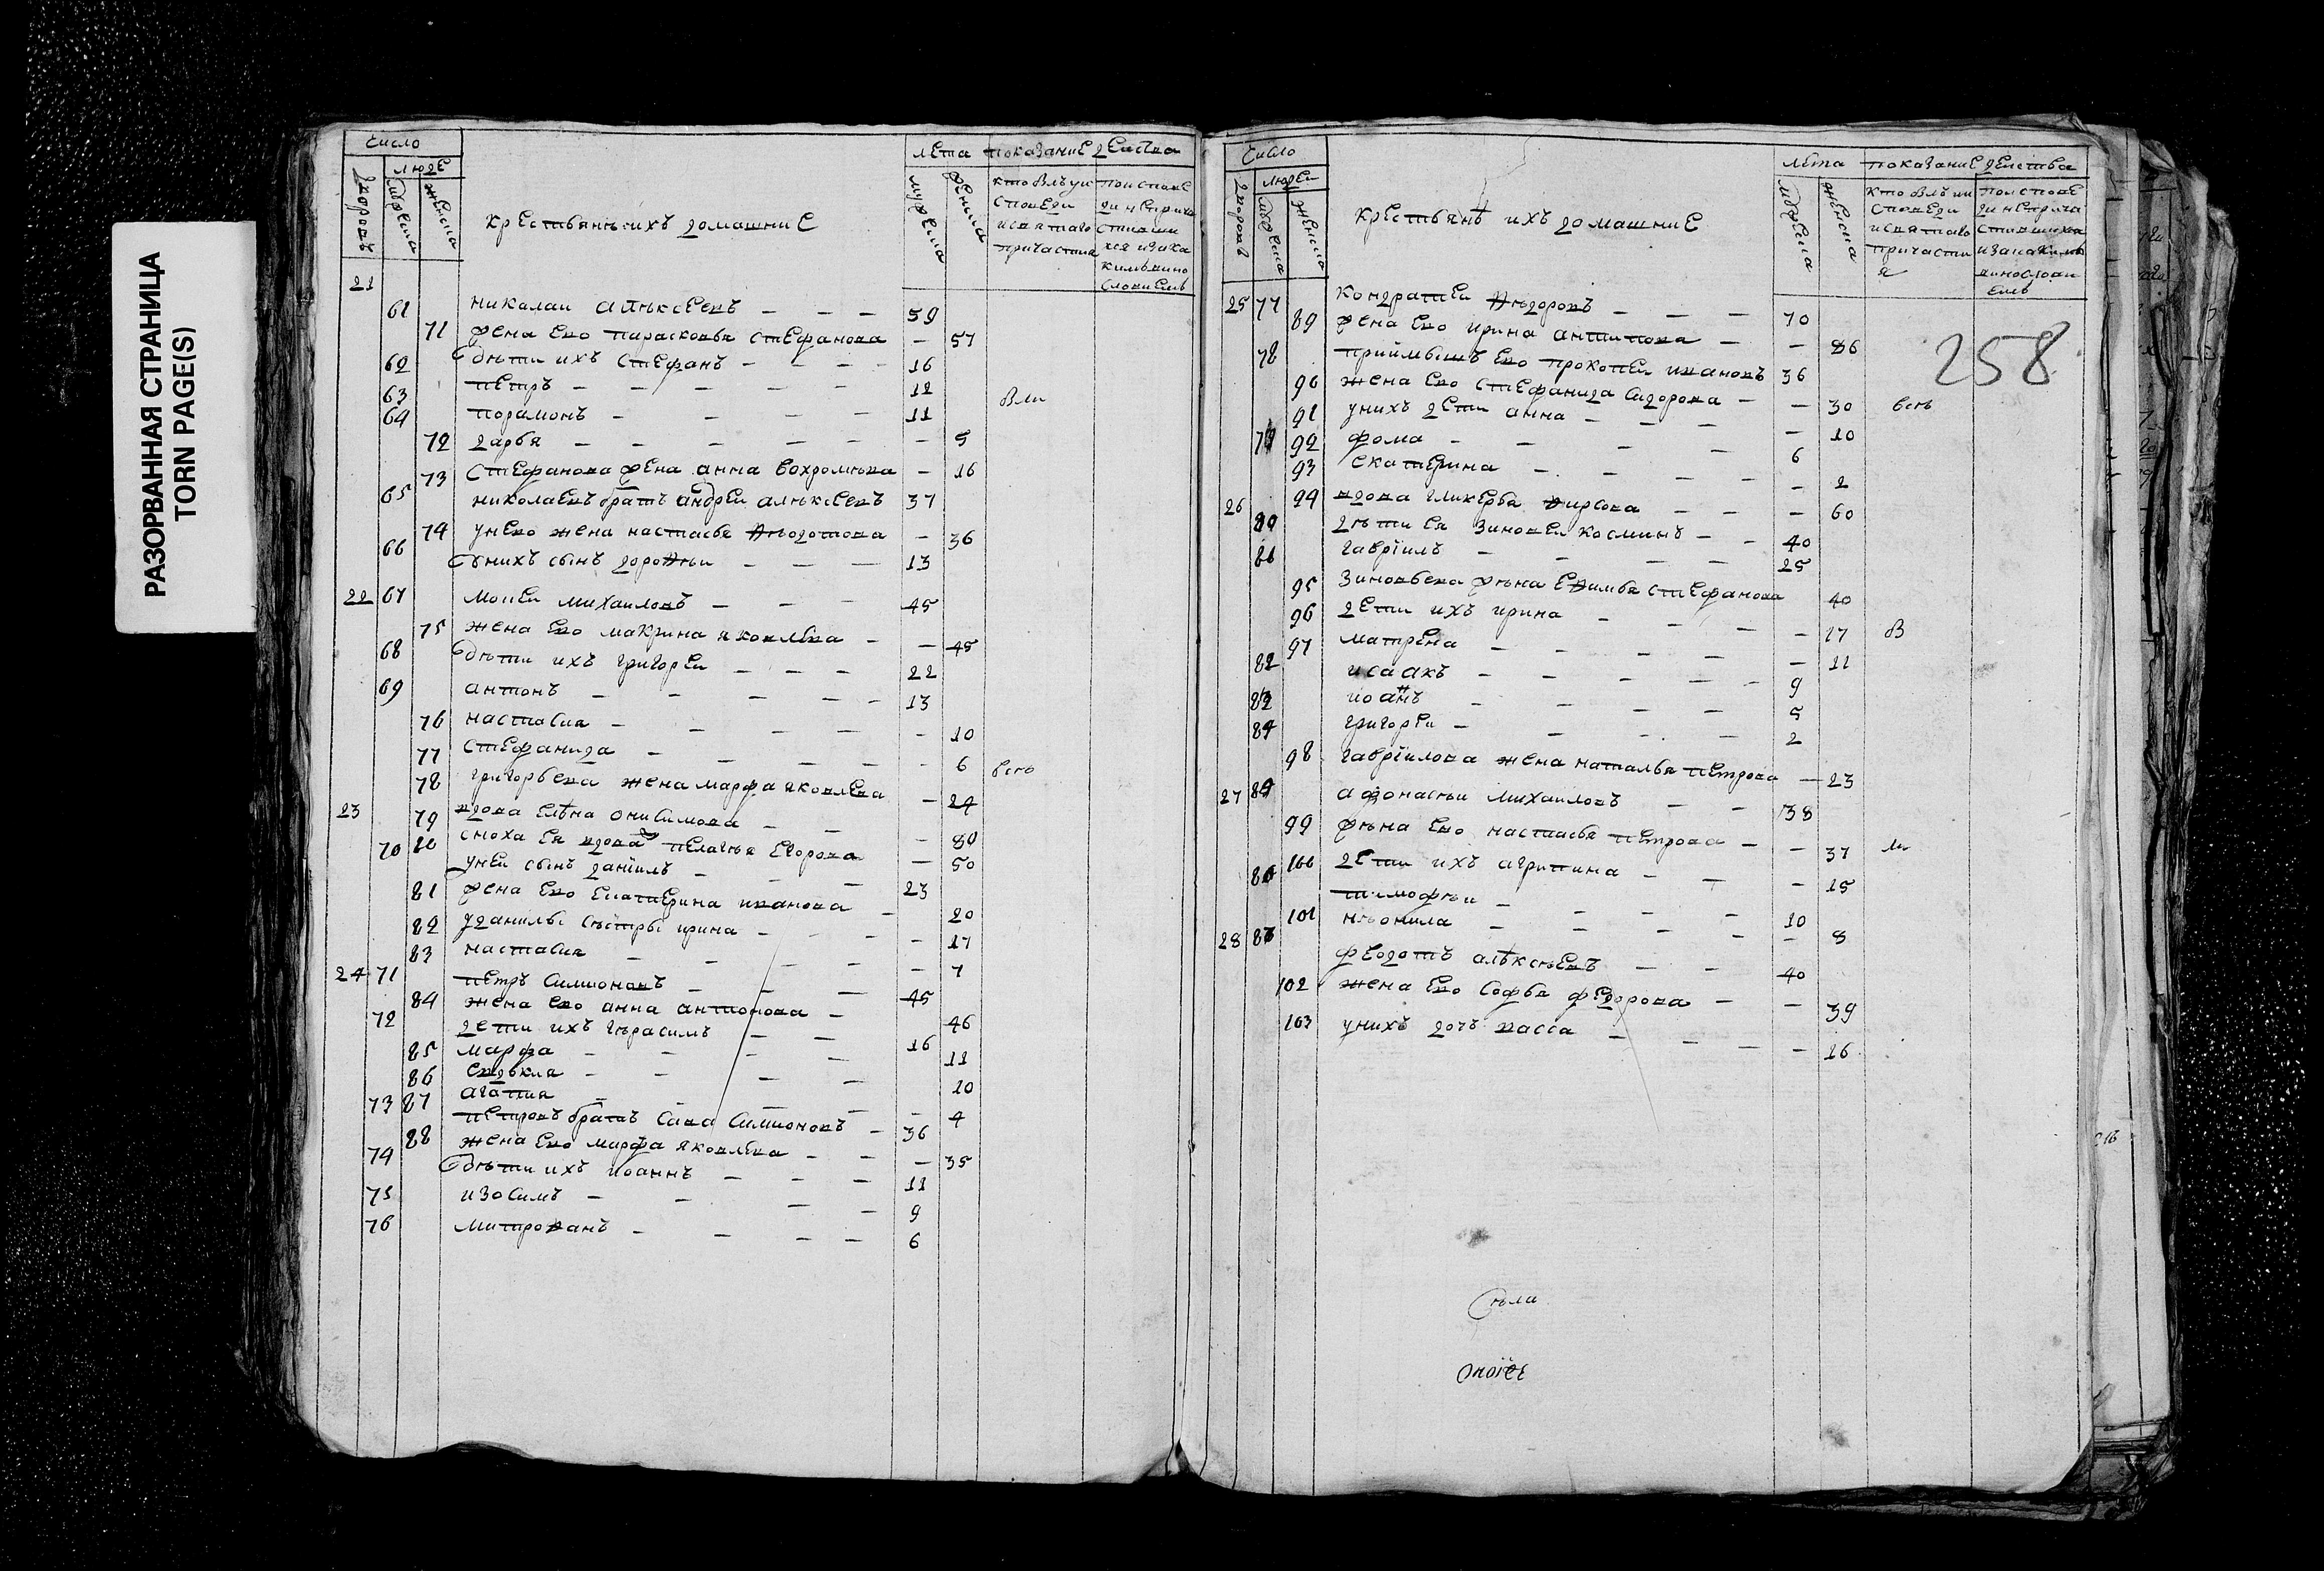 РАЗОРВАННАЯ СТРАНИЦА
TORN PAGE(S)
Число
людε
дворовъ
мужеска
женска
крестьянъ ихъ домашние
лета
мужеска
женска
показание действа
кто былъ у исповеди и святаго причастия
21
61 николаи алѣксеевъ — — — 59
71 жена ево парасковья стефанова — 57
62 дѣти ихъ стефанъ — — — 16
63 петръ — — — — 12
64 порамонъ — — — — 11
были
72 дарья — — — — — — 5
73 стефанова жена анна вахромѣева — 16
65 николаевъ братъ андреи алѣксеевъ 37
74 у нево жена настасья — 36
66 у нихъ сынъ дорофѣи — — — 13
22 67 моисеи михаиловъ — — — 45
75 жена ево макрина яковлева — — 45
68 дѣти ихъ григореи — — — 22
69 антонъ — — — — — 13
76 настасия — — — — — 10
77 стефанида — — — — — 6
78 григорьева жена марфа яковлева — 24
23 79 вдова елѣна онисимова — — — 80
80 сноха ея вдова пелагѣя егорова — 50
70 у неи сынъ даниилъ — — — 23
81 жена ево екатерина иванова — 20
82 у данилы сѣстры ирина — — — — 17
83 настасия — — — — — 7
24 71 петръ симионовъ — — — 45
84 жена ево анна антонова — 46
72 дети ихъ гѣрасимъ — — 16
85 марфа — — — — 11
86 евдокия — — — — 10
87 агапия — — — — — 4
73 петровъ братъ сава симионовъ — 36
88 жена ево марфа яковлева — — — 35
74 дѣти ихъ иоаннъ — — — 11
75 изосимъ — — — — — 9
76 митрофанъ — — — — 6
Число
людеи
дворовъ
мужеска
женска
крестьянѣ ихъ домашние
лѣта
мужеска
женска
показание действа
258
25 77 кондратеи фѣдоровъ — — — 70
89 жена ево ирина антипова — — 86
78 приимышъ ево прокопеи ивановъ 36
90 жена ево стефанида сидорова — — 30
91 у нихъ дети анна — — — — 10
79 92 фома — — — — 6
93 екатерина — — — — — 2
26 94 вдова гликерья фирсова — — — 60
80 дѣти ея зиновеи косминъ — — 40
81 гавриилъ — — — — 25
95 зиновьева жѣна ефимья стефанова 40
96 дети ихъ ирина — — — — 17
97 матрена — — — — — 11
82 исаакъ — — — — 9
83 иоанъ — — — — 5
84 григореи — — — — 2
98 гавриилова жена наталья петрова — 23
27 85 афонасѣи михаиловъ — — 38
99 жѣна ево настасья петрова — — 37
100 дети ихъ агрипина — — — 15
86 тимофѣи — — — — 10
101 нѣонила — — — — — 8
28 87 федотъ алѣксѣевъ — — 40
102 жена ево софья федорова — — 39
103 у нихъ дочь васса — — — — 16